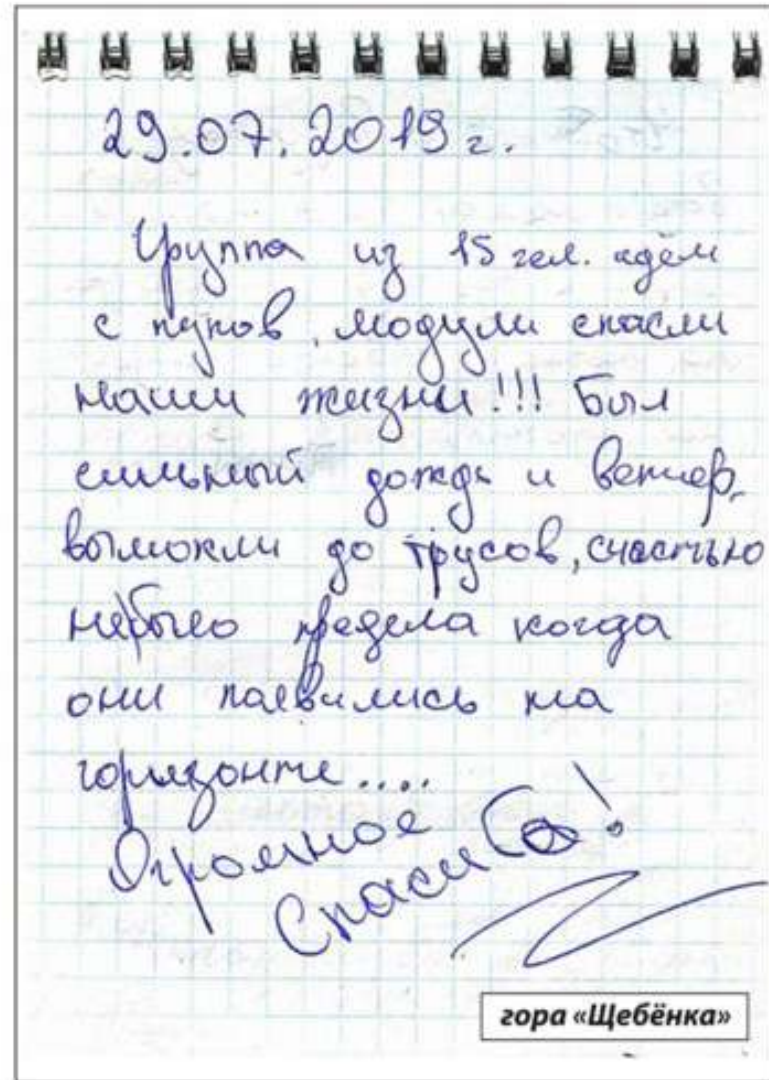 29.07.2019 г.
Группа из 15 чел. идём
с пупов, модули спасли
наши жизни!!! Был
сильный дождь и ветер,
вымокли до трусов, счастью
небыло предела когда
они паевились на
горизонте....
Огромное
Спасибо!
гора «Щебёнка»